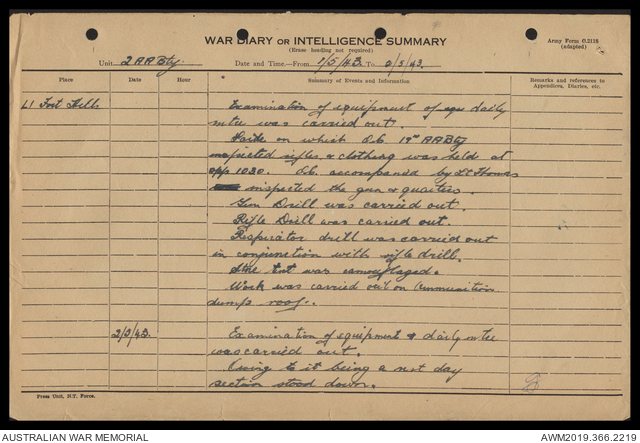 WAR DIARY OR INTELLIGENCE SUMMARY
(Erase heading not required)
Army Form C.2118
(adapted)
Unit 2 AA Bty. Date and Time—From 1/5/43 To 2/5/43.
Place Date Hour Summary of Events and Information Remarks and references to Appendices, Diaries, etc.
L1 Fort Hill. Examination of equipment daily
mtce was carried out.
on which O.C. 19th AA Bty
inspected rifles & clothing was held at
app 1030. O.C. accompanied by Lt Thomas
inspected the gun & quarters.
Gun Drill was carried out.
Rifle Drill was carried out.
Respirator drill was carried out
in conjunction with rifle drill.
tent was camouflaged.
Work was carried out on Ammunition
dump roof.
2/5/43. Examination of equipment & daily mtce
was carried out.
Owing to it being a rest day
section stood down.
Press Unit, N.T. Force.
AUSTRALIAN WAR MEMORIAL
AWM2019.366.2219